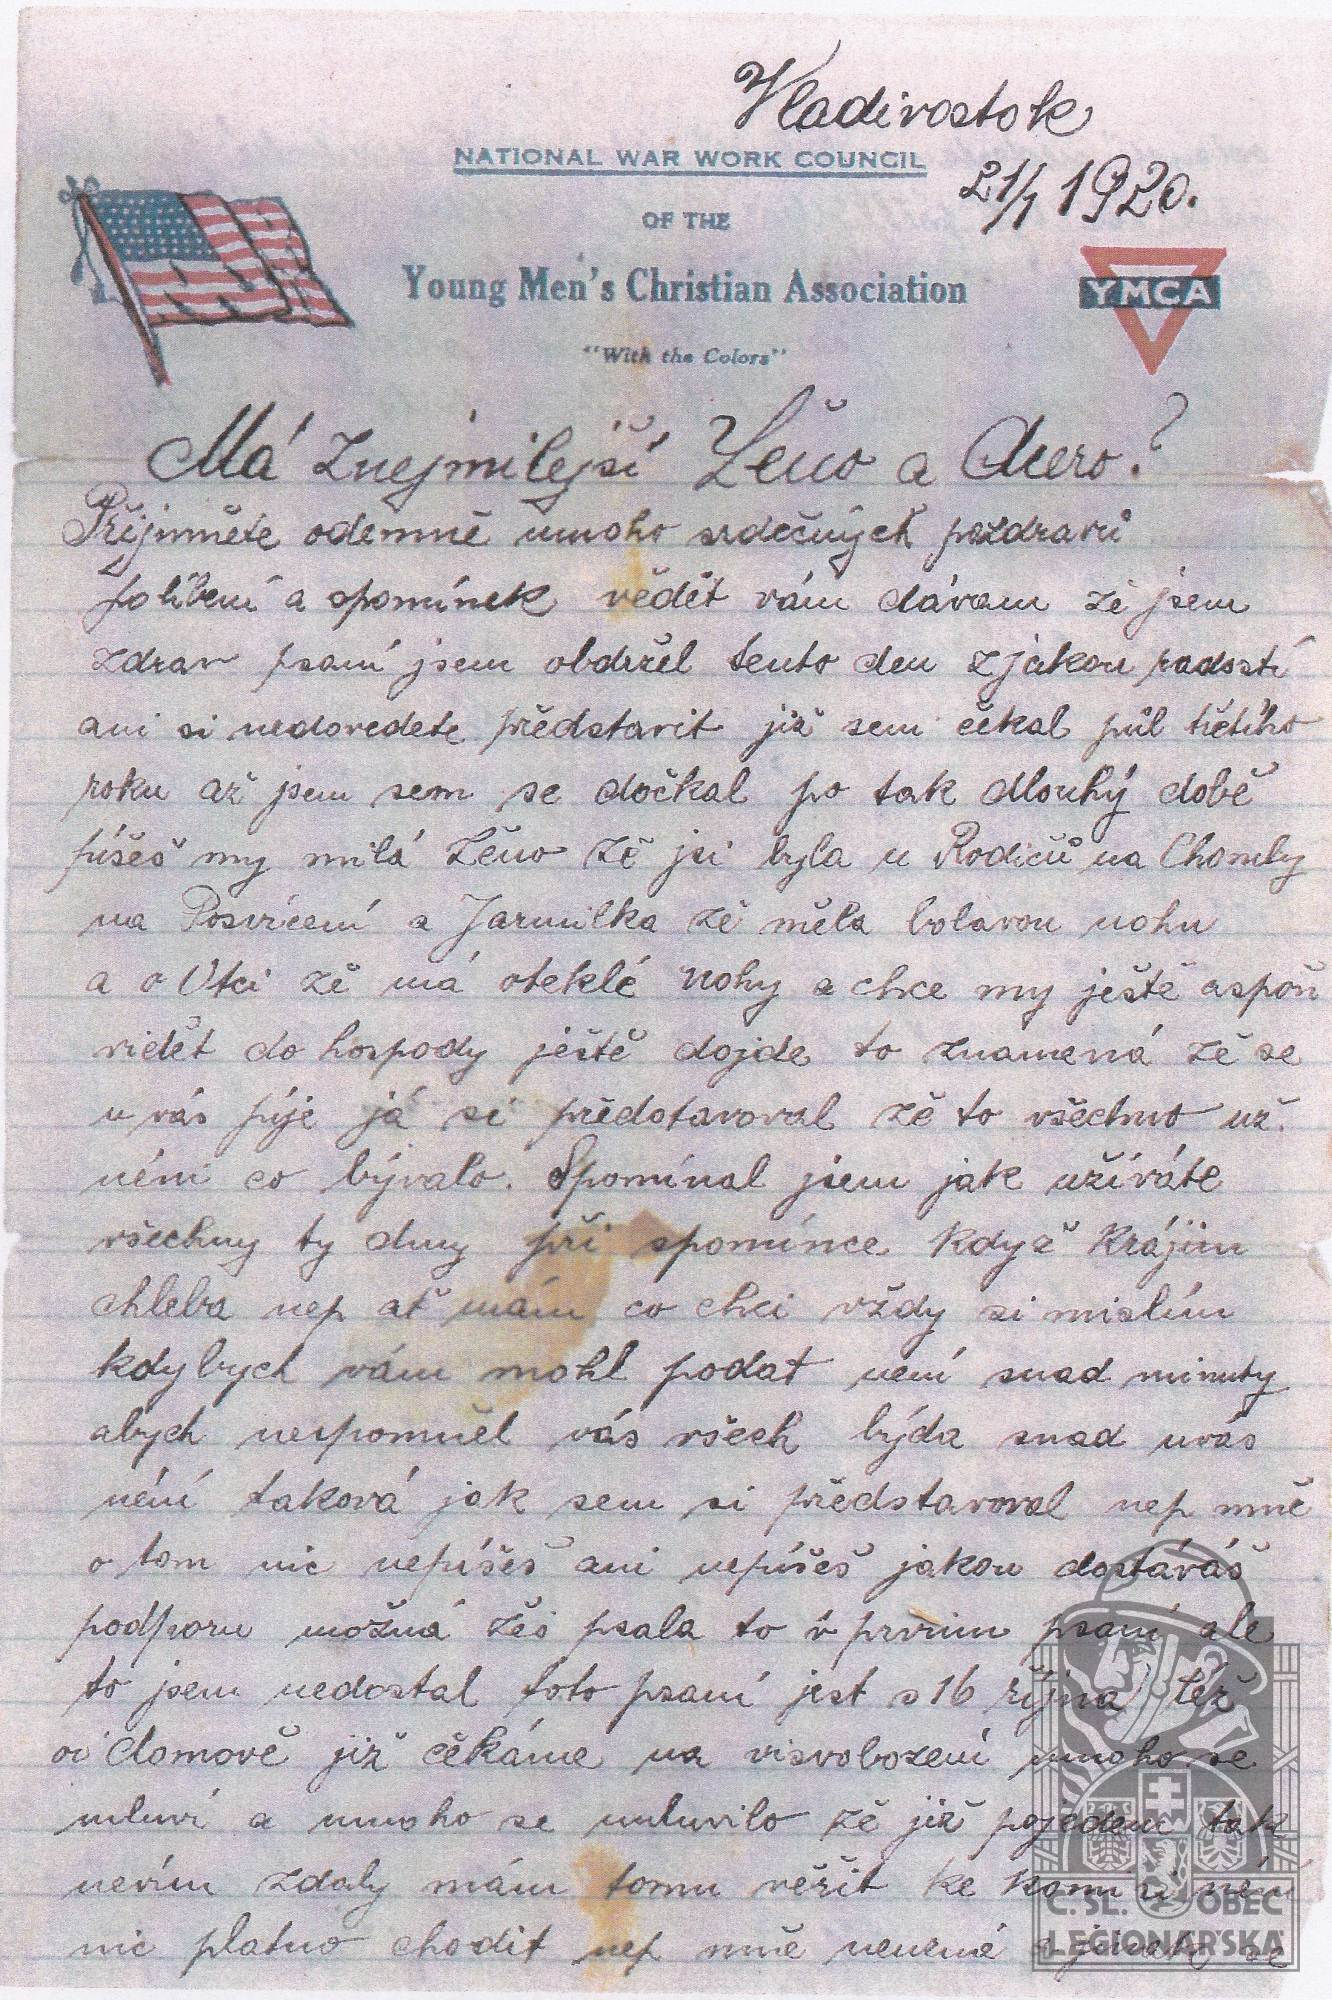 Vladivostok
21/1 1920.
NATIONAL WAR WORK COUNCIL
OF THE
Young Men's Christian Association
"With the Colors"
YMCA
Má znejmilejší Ženo a Dcero?
Přijmněte odemně mnoho srdečných pozdravů
políbení a spomínek vědět vám dávam žě jsem
zdrav psaní jsem obdržel tento den z jakou radostí
ani si nedovedete představit již sem čekal půl třetího
roku až jsem sem se dočkal po tak dlouhý době
píšeš my milá Ženo žě jsi byla u Rodičů na Chomly
na Posvícení a Jarmilka žě měla bolavou nohu
a o Otci žě má oteklé nohy a chce my ještě aspoň
vidět do hospody ještě dojde to znamená žě se
u vás píje já si představoval žě to všechno už
néni co bývalo. Spomínal jsem jak užíváte
všechny ty dny při spomínce když krájim
chleba nep ať mám co chci vždy si mislím
kdybych vám mohl podat není snad minuty
abych nespomněl vás všech býda snad uvás
néní taková jak sem si představoval nep mně
o tom nic nepíšeš ani nepíšeš jakou dostáváš
podporu možná žés psala to v prvnim psaní ale
to jsem nedostal toto psaní jest s 16 října též
oi domově již čěkáme na visvobození mnoho se
mluví a mnoho se mluvilo žě již pojedem tak
nevím zdaly mám tomu věřit ke komu si néní
nic platno chodit nep mně neméně a jinak se
Č. SL. OBEC
LEGIONÁŘSKÁ